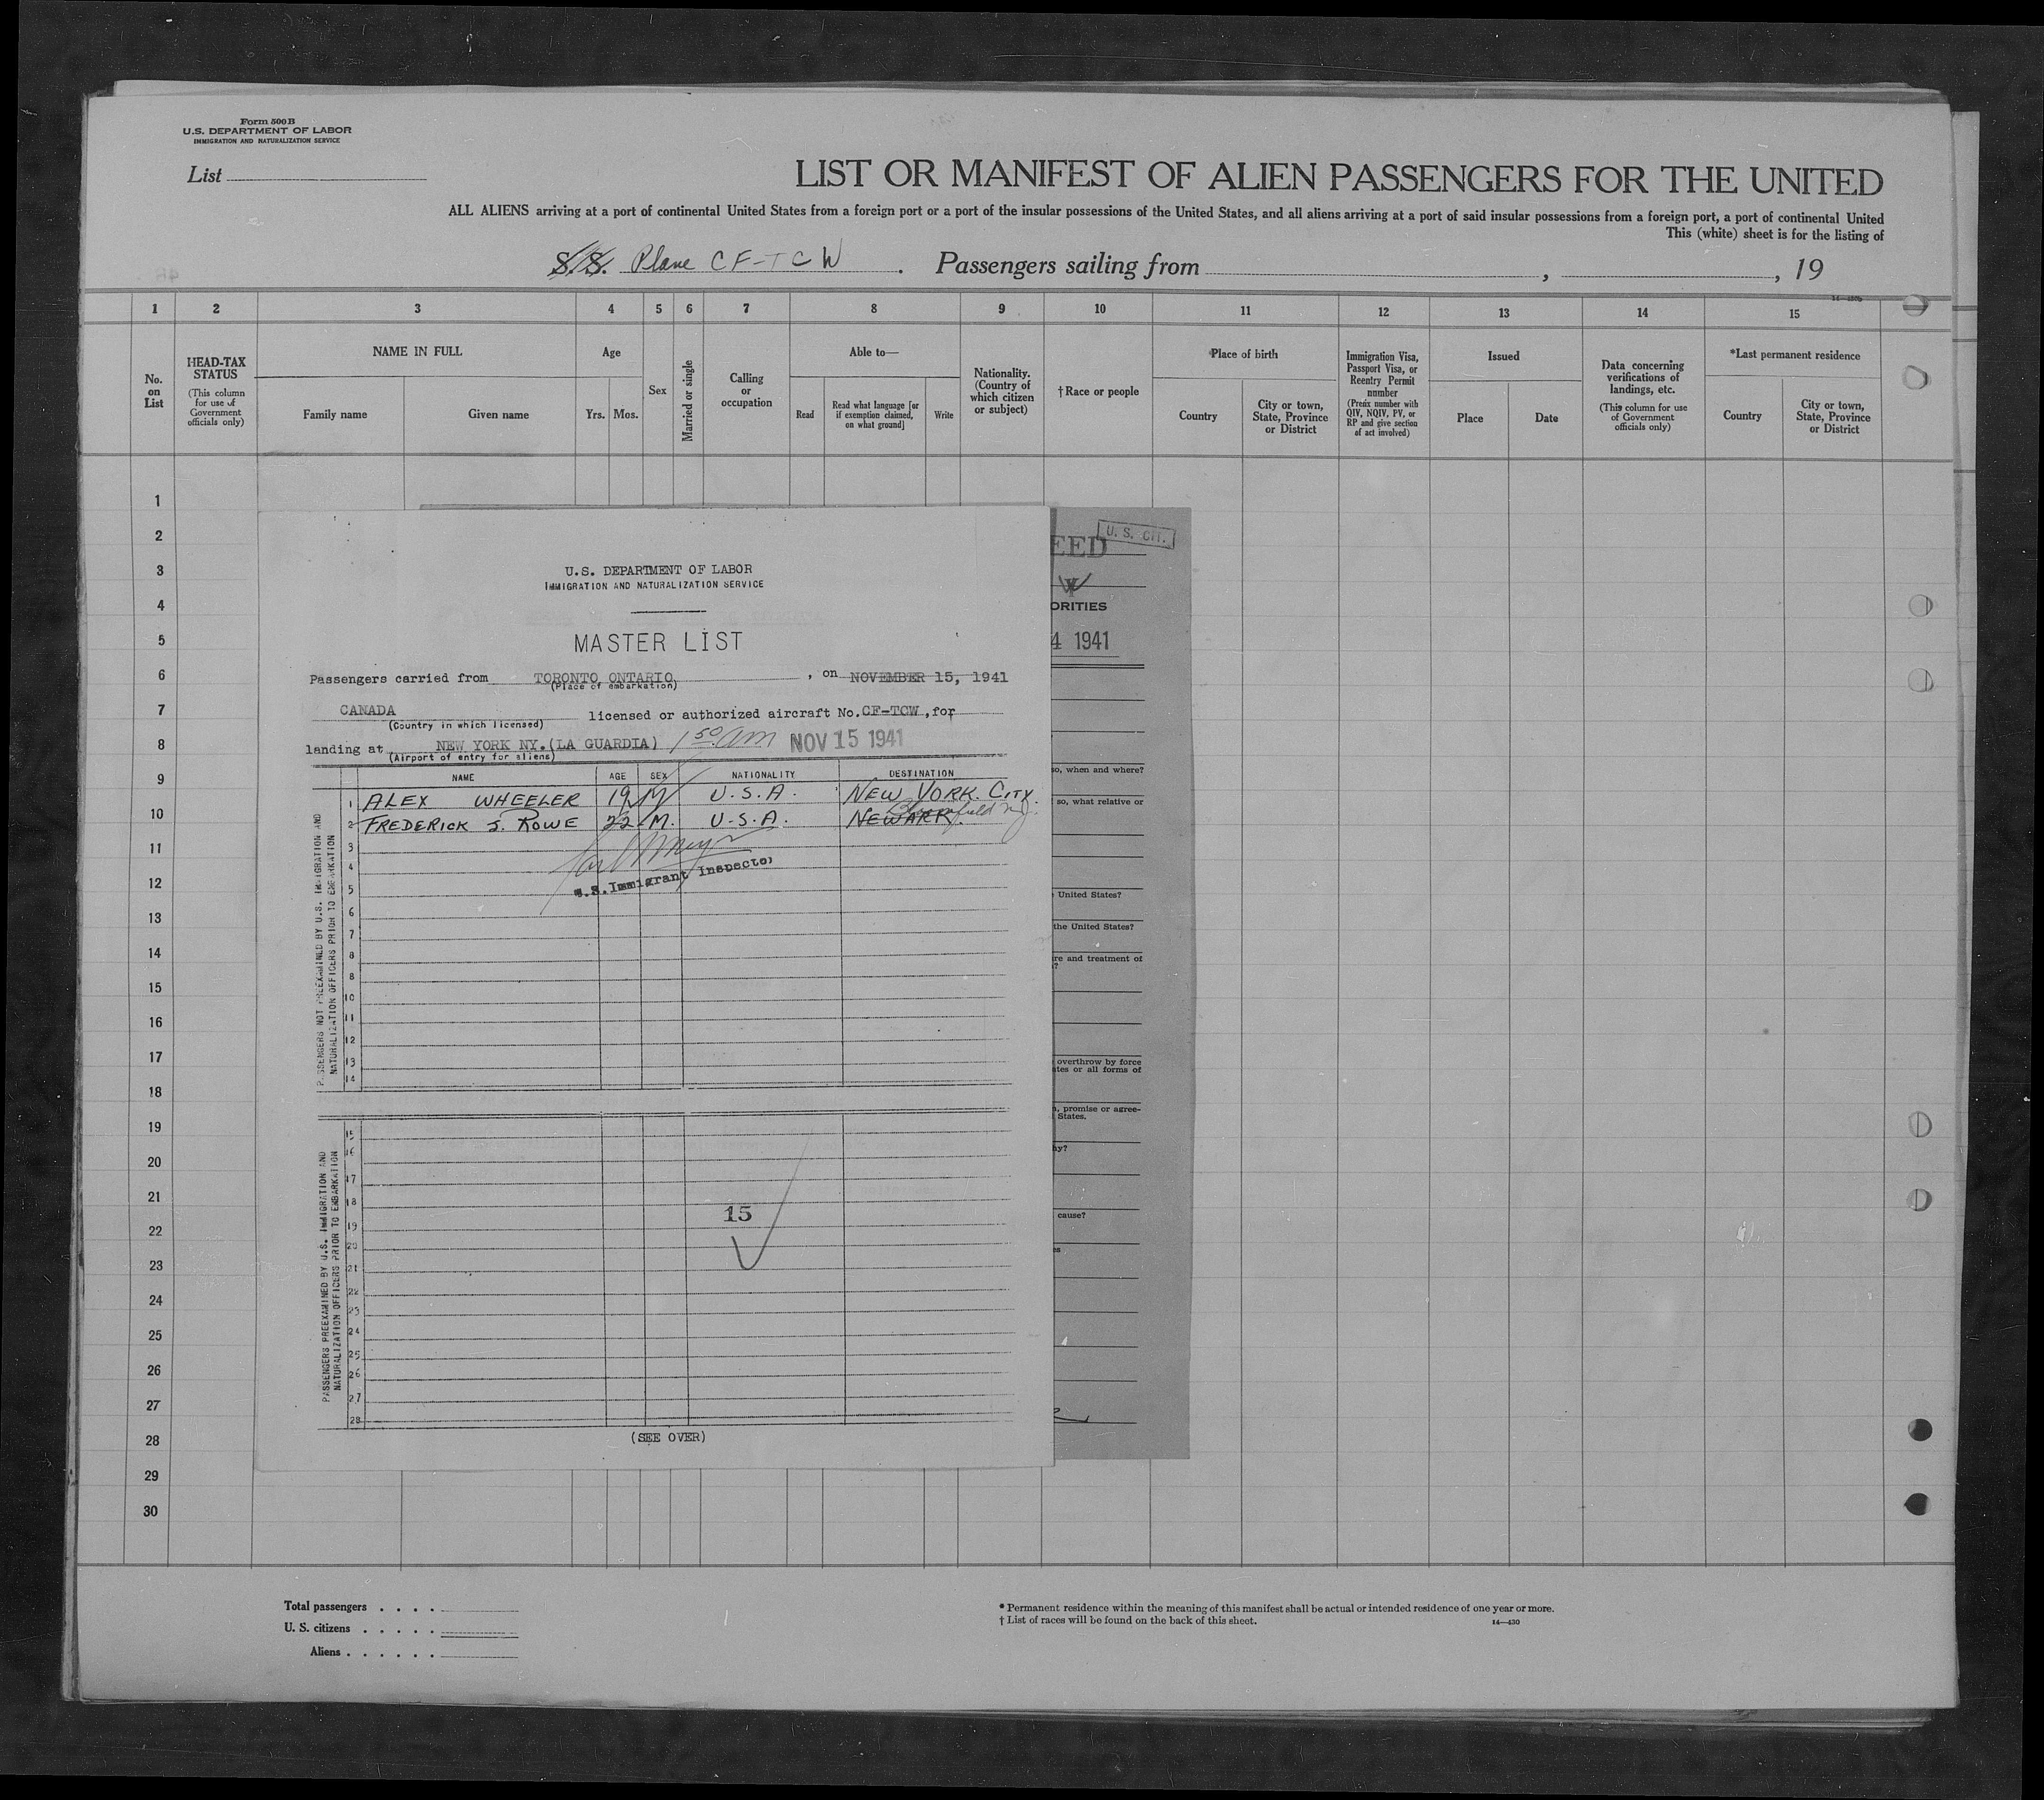 Form 500 B
U.S. DEPARTMENT OF LABOR
IMMIGRATION AND NATURALIZATION SERVICE
List
LIST OR MANIFEST OF ALIEN PASSENGERS FOR THE UNITED
ALL ALIENS arriving at a port of continental United States from a foreign port or a port of the insular possessions of the United States, and all aliens arriving at a port of said insular possessions from a foreign port, a port of continental United
This (white) sheet is for the listing of
S.S. Plane CF-TCW . Passengers sailing from , , 19
1 2 3 4 5 6 7 8 9 10 11 12 13 14 15
No. on List
HEAD-TAX STATUS
(This column for use of Government officials only)
NAME IN FULL
Family name
Given name
Age
Yrs.
Mos.
Sex
Married or single
Calling or occupation
Able to—
Read
Read what language [or if exemption claimed, on what ground]
Write
Nationality. (Country of which citizen or subject)
†Race or people
Place of birth
Country
City or town, State, Province or District
Immigration Visa, Passport Visa, or Reentry Permit number
(Prefix number with QIV, NQIV, PV, or RP and give section of act involved)
Issued
Place
Date
Data concerning verifications of landings, etc.
(This column for use of Government officials only)
*Last permanent residence
Country
City or town, State, Province or District
1
2
3
4
5
6
7
8
9
10
11
12
13
14
15
16
17
18
19
20
21
22
23
24
25
26
27
28
29
30
U.S. DEPARTMENT OF LABOR
IMMIGRATION AND NATURALIZATION SERVICE
MASTER LIST
Passengers carried from TORONTO ONTARIO , on NOVEMBER 15, 1941
(Place of embarkation)
CANADA licensed or authorized aircraft No. CF-TCW , for
(Country in which licensed)
landing at NEW YORK NY. (LA GUARDIA) 1 50 am NOV 15 1941
(Airport of entry for aliens)
NAME AGE SEX NATIONALITY DESTINATION
1 ALEX WHEELER 19 M U.S.A. NEW YORK. CITY.
2 FREDERICK S. ROWE 22 M. U.S.A. NEWARK. Bloomfield NJ.
3
4
U.S. Immigrant Inspector
5
6
7
8
8
10
11
12
13
14
PASSENGERS NOT PREEXAMINED BY U.S. IMMIGRATION AND
NATURALIZATION OFFICERS PRIOR TO EMBARKATION
15
16
17
18
15
19
20
21
22
23
24
25
26
27
28
PASSENGERS PREEXAMINED BY U.S. IMMIGRATION AND
NATURALIZATION OFFICERS PRIOR TO EMBARKATION
(SEE OVER)
U. S. CIT.
EED
ORITIES
4 1941
so, when and where?
so, what relative or
United States?
the United States?
re and treatment of
?
overthrow by force
ates or all forms of
n, promise or agree-
States.
hy?
cause?
es
Total passengers . . . .
U. S. citizens . . . . .
Aliens . . . . . .
* Permanent residence within the meaning of this manifest shall be actual or intended residence of one year or more.
† List of races will be found on the back of this sheet.
14—430